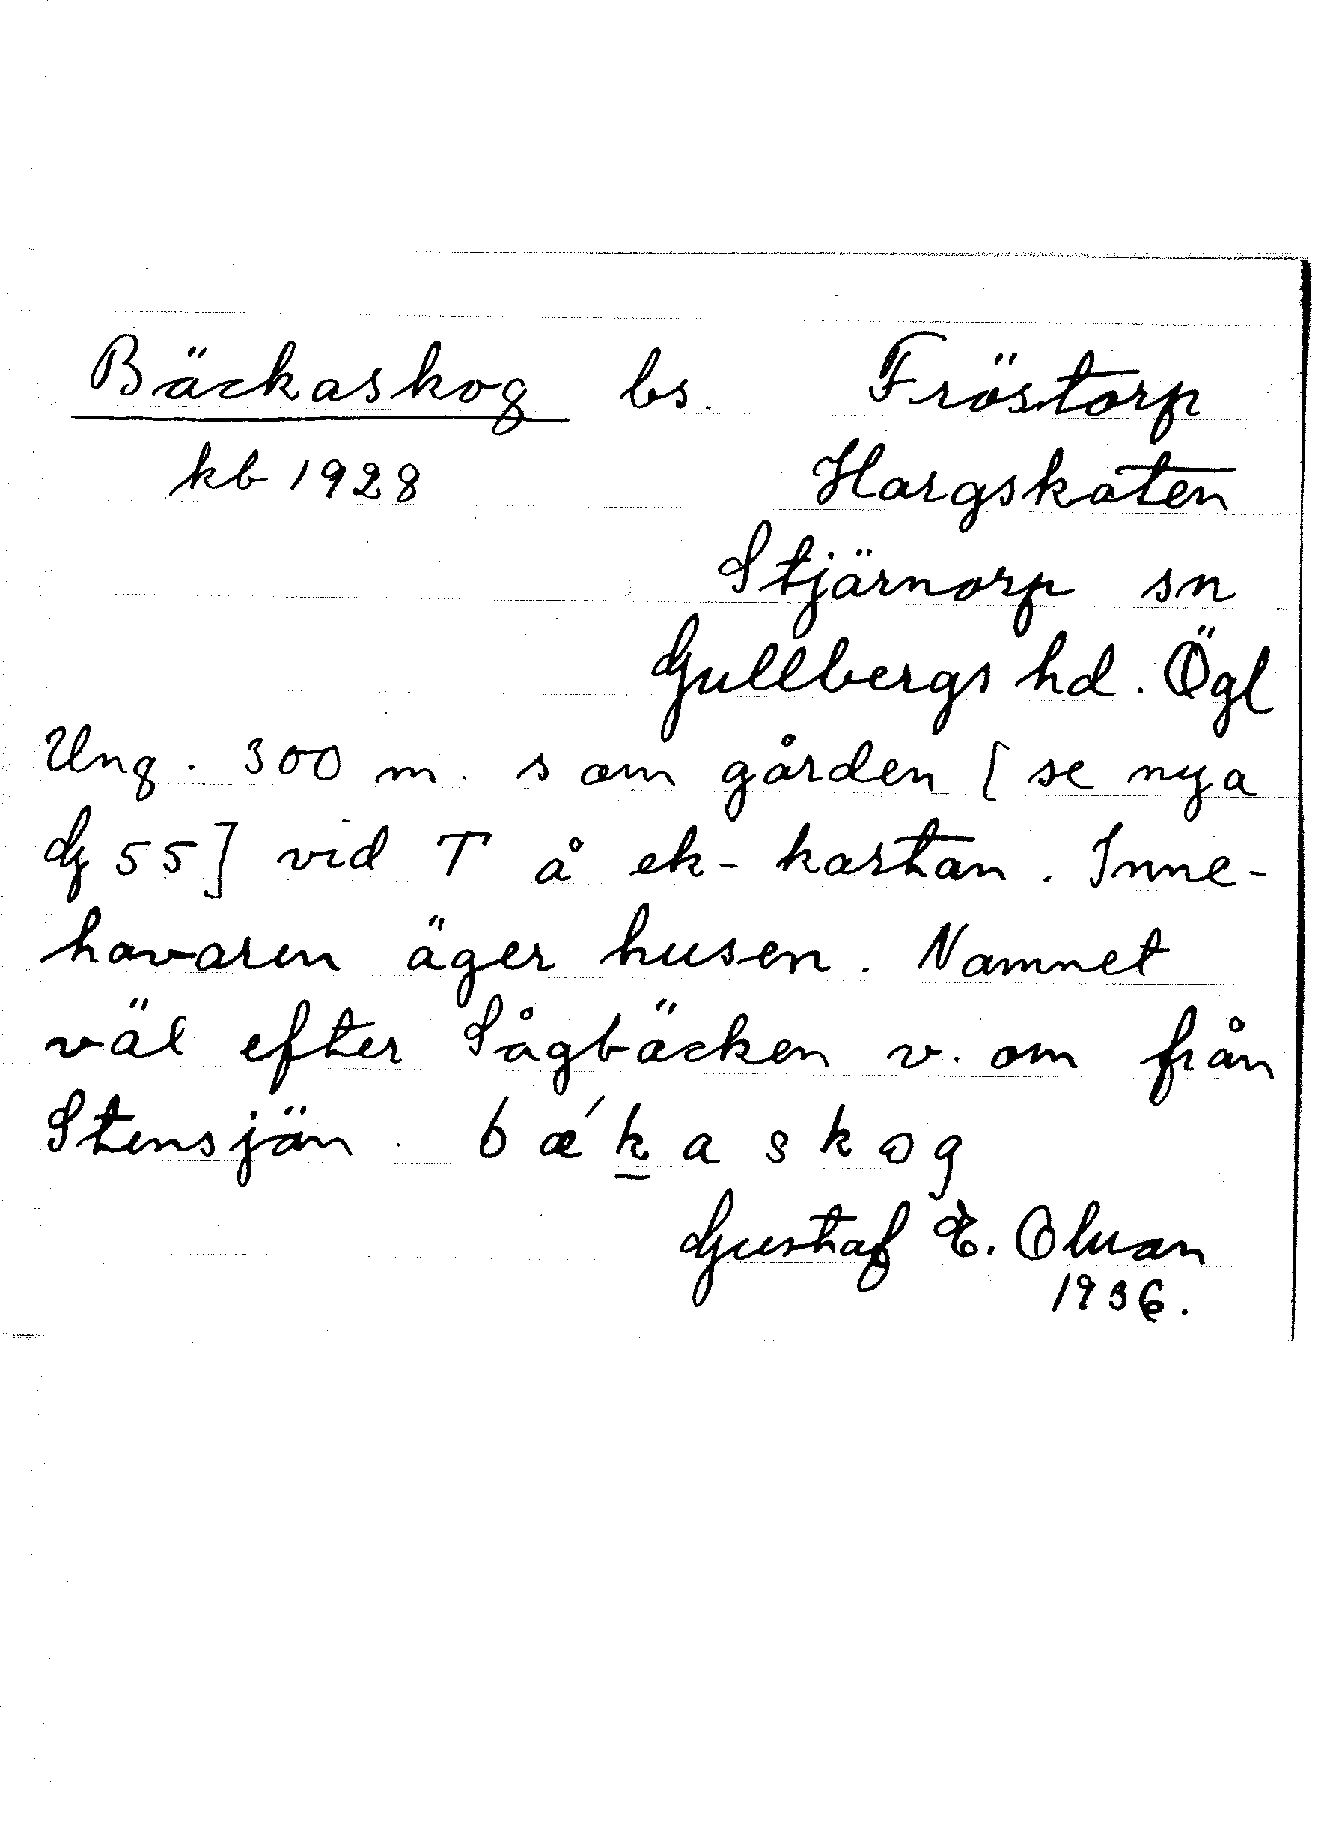 Bäckaskog bs. Fröstorp
kb 1928 Hargskaten
Stjärnorp sn
Gullbergs hd. Ögl
Ung. 300 m. s om gården [se nya
Gg 55] vid T å ek-kartan. Inne-
havaren äger husen. Namnet
väl efter Sågbäcken v. om från
Stensjön. bǽk̲askog
Gustaf E. Olson
1936.